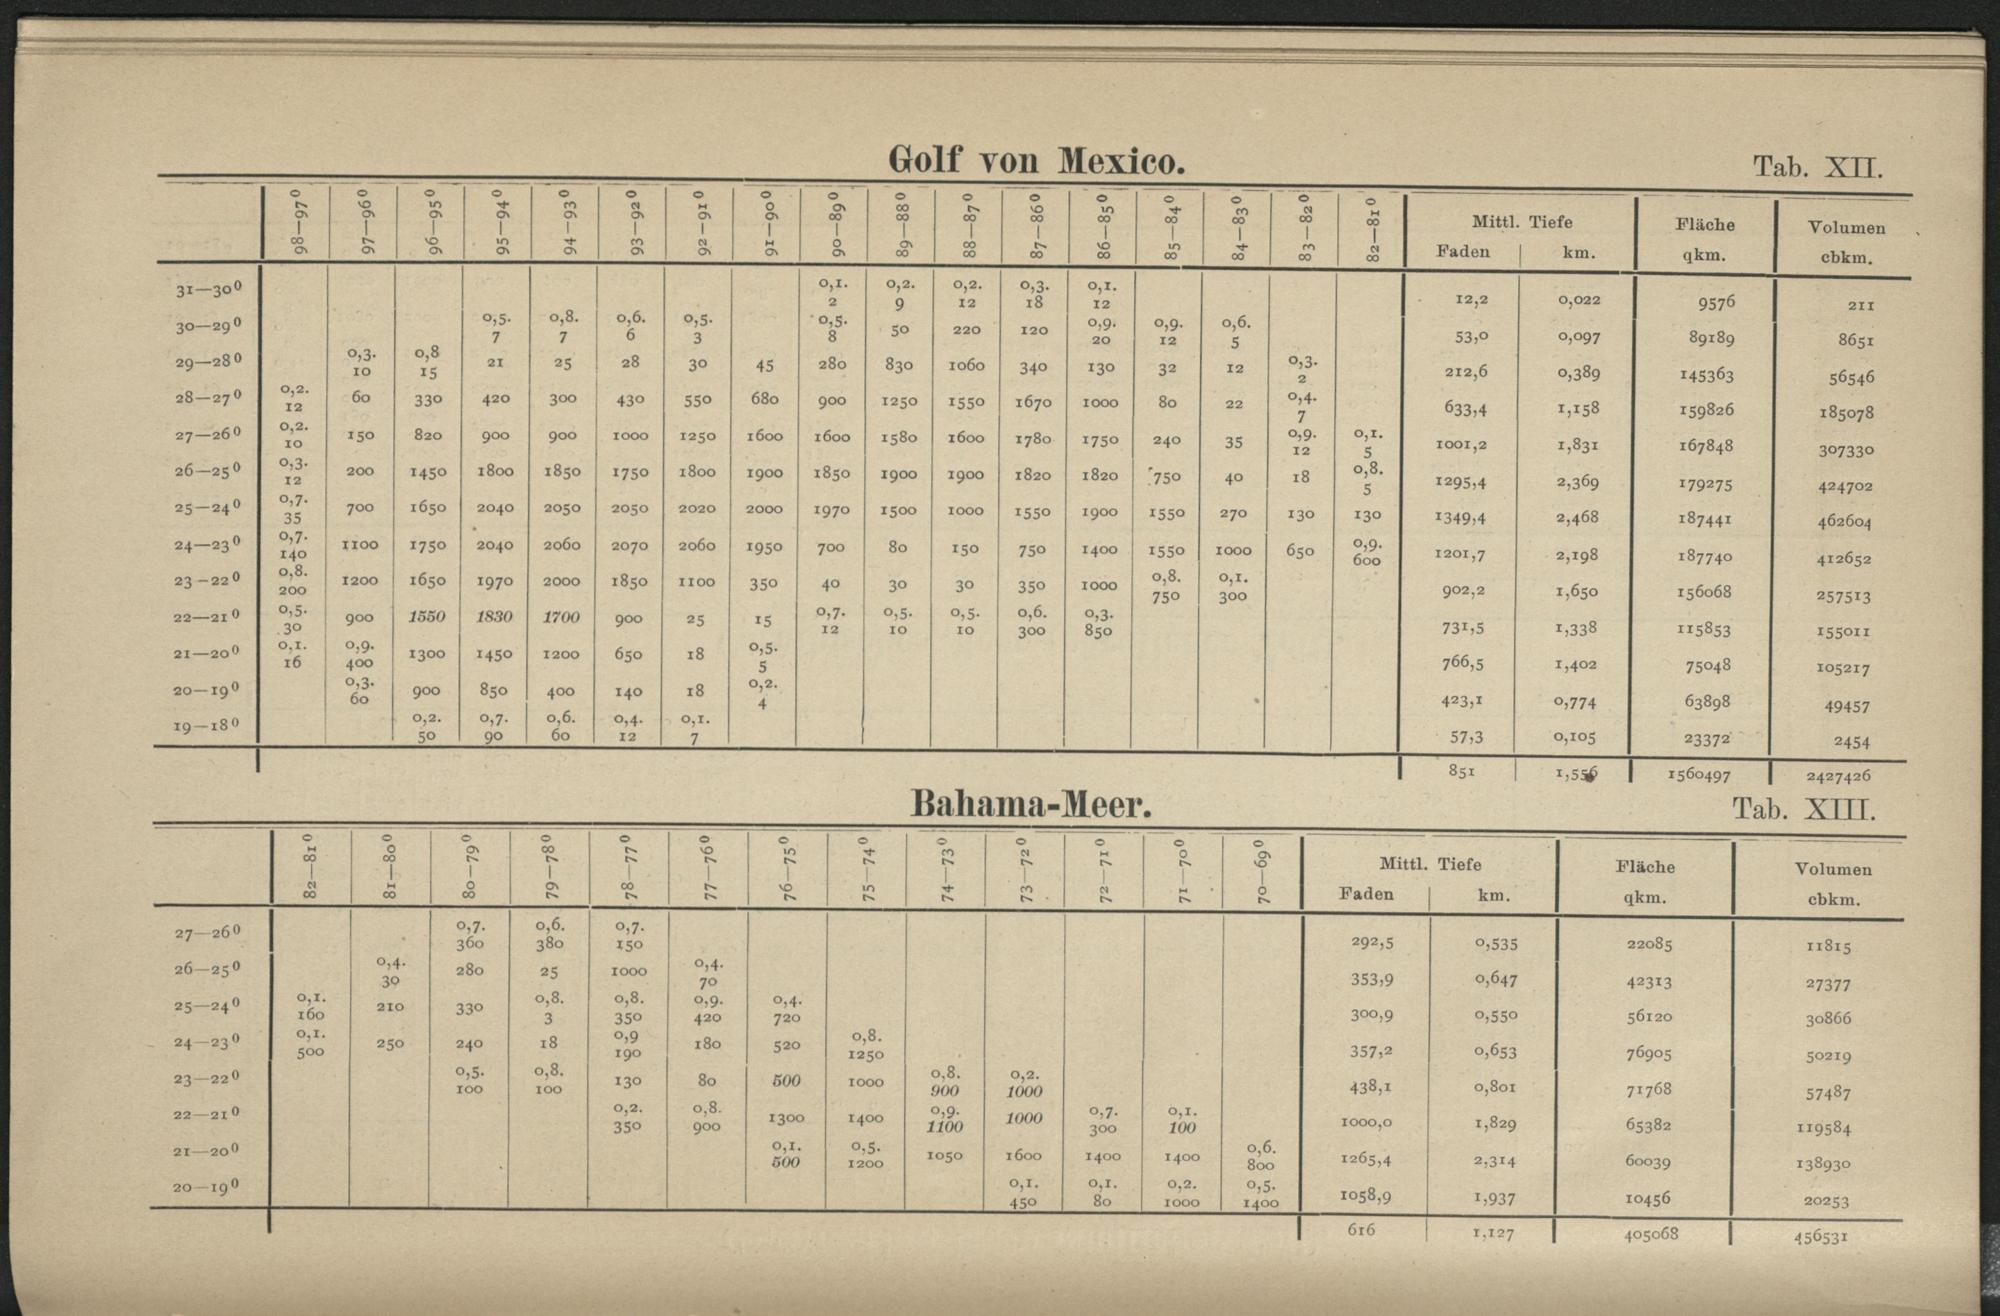 Golf von Mexico.
Tab. XII.
98—97⁰ 97—96⁰ 96—95⁰ 95—94⁰ 94—93⁰ 93—92⁰ 92—91⁰ 91—90⁰ 90—89⁰ 89—88⁰ 88—87⁰ 87—86⁰ 86—85⁰ 85—84⁰ 84—83⁰ 83—82⁰ 82—81⁰ Mittl. Tiefe Fläche Volumen
Faden km. qkm. cbkm.
31—30⁰ 0,1. 0,2. 0,2. 0,3. 0,1.
2 9 12 18 12 12,2 0,022 9576 211
30—29⁰ 0,5. 0,8. 0,6. 0,5. 0,5. 50 220 120 0,9. 0,9. 0,6.
7 7 6 3 8 20 12 5 53,0 0,097 89189 8651
29—28⁰ 0,3. 0,8 21 25 28 30 45 280 830 1060 340 130 32 12 0,3.
10 15 2 212,6 0,389 145363 56546
28—27⁰ 0,2. 60 330 420 300 430 550 680 900 1250 1550 1670 1000 80 22 0,4.
12 7 633,4 1,158 159826 185078
27—26⁰ 0,2. 150 820 900 900 1000 1250 1600 1600 1580 1600 1780 1750 240 35 0,9. 0,1.
10 12 5 1001,2 1,831 167848 307330
26—25⁰ 0,3. 200 1450 1800 1850 1750 1800 1900 1850 1900 1900 1820 1820 750 40 18 0,8.
12 5 1295,4 2,369 179275 424702
25—24⁰ 0,7. 700 1650 2040 2050 2050 2020 2000 1970 1500 1000 1550 1900 1550 270 130 130
35 1349,4 2,468 187441 462604
24—23⁰ 0,7. 1100 1750 2040 2060 2070 2060 1950 700 80 150 750 1400 1550 1000 650 0,9.
140 600 1201,7 2,198 187740 412652
23—22⁰ 0,8. 1200 1650 1970 2000 1850 1100 350 40 30 30 350 1000 0,8. 0,1.
200 750 300 902,2 1,650 156068 257513
22—21⁰ 0,5. 900 1550 1830 1700 900 25 15 0,7. 0,5. 0,5. 0,6. 0,3.
30 12 10 10 300 850 731,5 1,338 115853 155011
21—20⁰ 0,1. 0,9. 1300 1450 1200 650 18 0,5.
16 400 5 766,5 1,402 75048 105217
20—19⁰ 0,3. 900 850 400 140 18 0,2.
60 4 423,1 0,774 63898 49457
19—18⁰ 0,2. 0,7. 0,6. 0,4. 0,1.
50 90 60 12 7 57,3 0,105 23372 2454
851 1,556 1560497 2427426
Bahama-Meer.
Tab. XIII.
82—81⁰ 81—80⁰ 80—79⁰ 79—78⁰ 78—77⁰ 77—76⁰ 76—75⁰ 75—74⁰ 74—73⁰ 73—72⁰ 72—71⁰ 71—70⁰ 70—69⁰ Mittl. Tiefe Fläche Volumen
Faden km. qkm. cbkm.
27—26⁰ 0,7. 0,6. 0,7.
360 380 150 292,5 0,535 22085 11815
26—25⁰ 0,4. 280 25 1000 0,4.
30 70 353,9 0,647 42313 27377
25—24⁰ 0,1. 210 330 0,8. 0,8. 0,9. 0,4.
160 3 350 420 720 300,9 0,550 56120 30866
24—23⁰ 0,1. 250 240 18 0,9 180 520 0,8.
500 190 1250 357,2 0,653 76905 50219
23—22⁰ 0,5. 0,8. 130 80 500 1000 0,8. 0,2.
100 100 900 1000 438,1 0,801 71768 57487
22—21⁰ 0,2. 0,8. 1300 1400 0,9. 1000 0,7. 0,1.
350 900 1100 300 100 1000,0 1,829 65382 119584
21—20⁰ 0,1. 0,5. 1050 1600 1400 1400 0,6.
500 1200 800 1265,4 2,314 60039 138930
20—19⁰ 0,1. 0,1. 0,2. 0,5.
450 80 1000 1400 1058,9 1,937 10456 20253
616 1,127 405068 456531